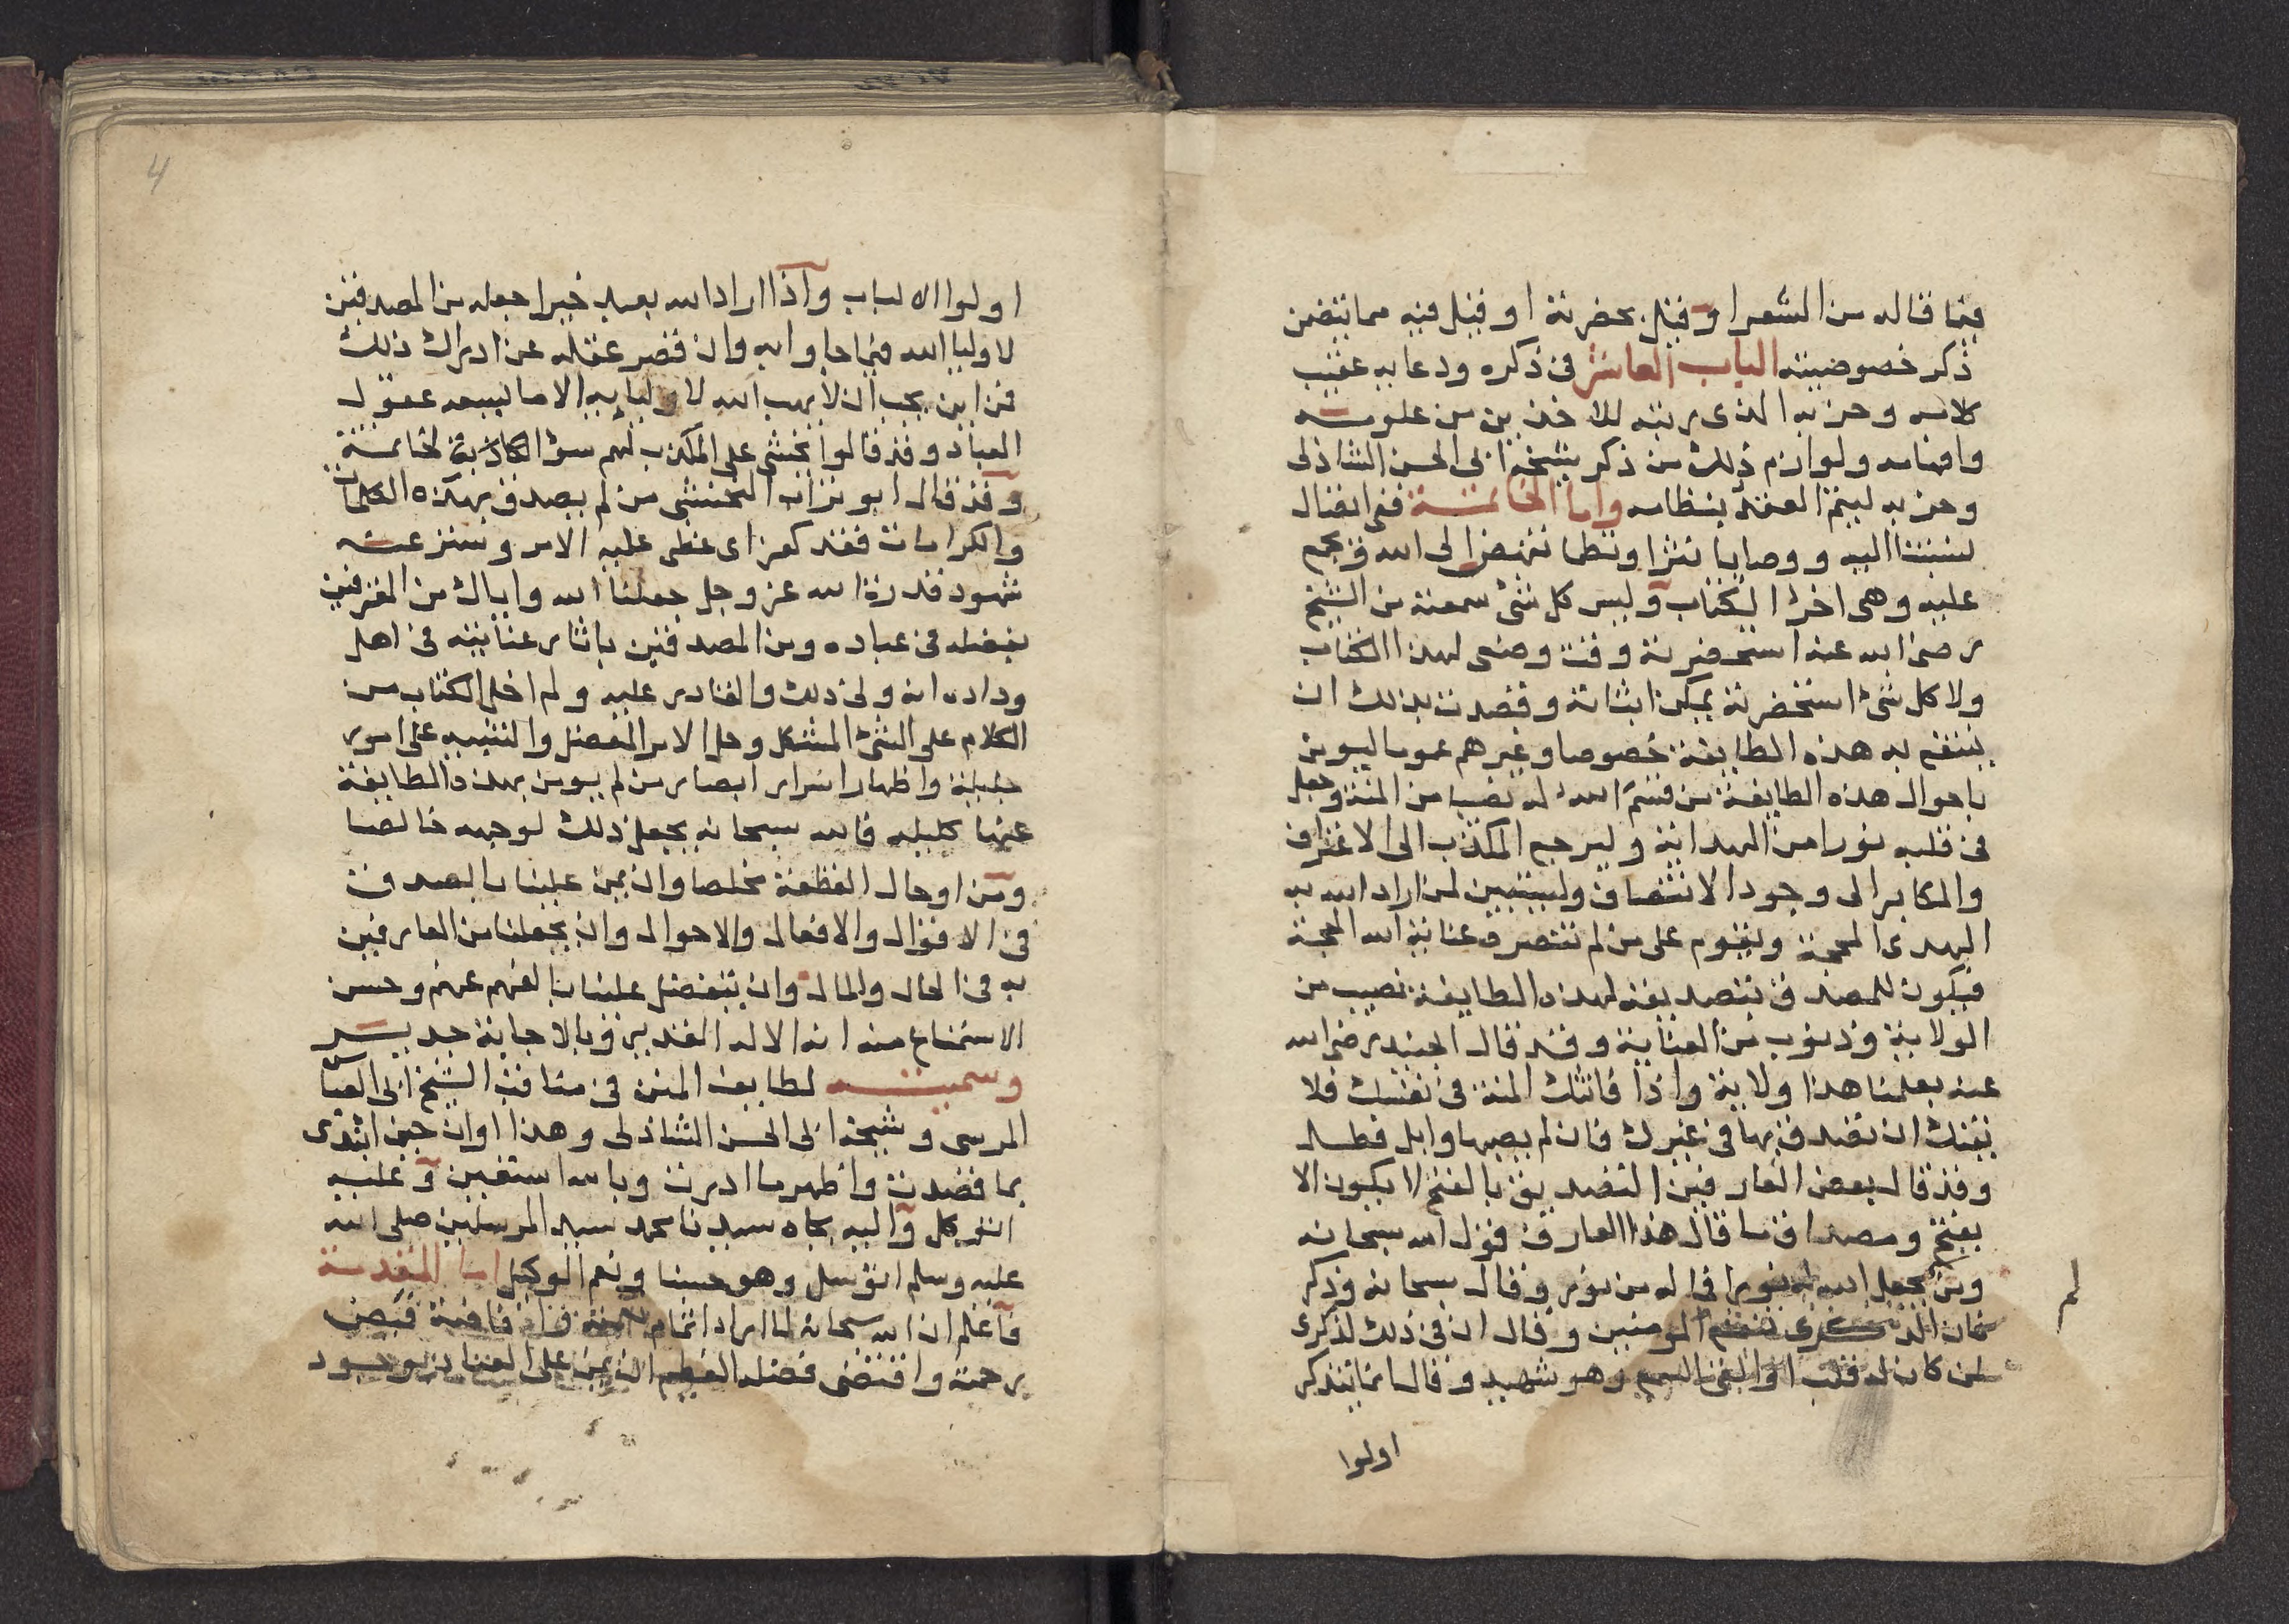 فيما قاله من الشعر او قيل بحضرته او قيل فيه مما يتضمن
ذكر خصوصيته الباب العاشر في ذكره ودعايه عقيب
كلامه وحزبه الذي رتبه للاخذين من علومه
وافهامه ولوازم ذلك من ذكر شيخه ابي الحسن الشاذلي
وحزبه ليتم العقد بنظامه واما الخاتمة ففي اتصال
نسبتنا اليه ووصايا نثرا ونظما تنهض الى الله وتجمع
عليه وهي اخر الكتاب وليس كل شئ سمعته من الشيخ
رضي الله عنه استحضرته وقت وضعي لهذا الكتاب
ولا كل شئ استحضرته يمكن اثباته وقصدت بذلك ان
ينتفع به هذه الطايفة خصوصا وغيرهم عموما ليومن
باحوال هذه الطايفة من قسم الله له نصيبا من المنة وجعل
في قلبه نورا من الهداية وليرجع المكذب الى الاعتراف
والمكابر الى وجود الانتصاف وليتبين لمن اراد الله به
الهدى المحجة وتقوم على من لم تنصره عناية الله الحجة
فيكون للمصدق بتصديقه لهذه الطايفة نصيب من
الولاية وذنوب من العناية وقد قال الجنيد رضي الله
عنه بعلمنا هذا ولاية واذا فاتتك المنة في نفسك فلا
يفتك ان تصدق بها في غيرك فان لم يصبها وابل فطل
وقد قال بعض العارفين التصديق بالفتح لا يكون الا
بفتح ومصداق ما قال هذا العارف قول الله سبحانه
ومن لم يجعل الله له نورا فما له من نور وقال سبحانه وذكر
فان الذكرى تنفع المومنين وقال ان في ذلك لذكرى
لمن كان له قلب او القى السمع وهو شهيد وقال انما يتذكر
اولوا
4
اولوا الالباب واذا اراد الله بعبد خيرا جعله من المصدقين
لاوليا الله فيما جاوا به وان قصر عقله عن ادراك ذلك
فمن اين يجب ان لا يهب الله لاوليايه الا ما يسعه عقول
العباد وقد قالوا يخشى على المكذب لهم سؤ الخاتمة
وقد قال ابو تراب النخشبي من لم يصدق بهذه الكلمات
والكرامات فقد كفر اي غطى عليه الامر وستر عنه
شهود قدرة الله عز وجل جعلنا الله واياك من المعترفين
بفضله في عباده ومن المصدقين باثار عنايته في اهل
وداده انه ولي ذلك والقادر عليه ولم اخل الكتاب من
الكلام على الشئ المشكل وحل الامر المعضل والتنبيه على امور
جليلة واظهار اسرار ابصار من لم يومن بهذه الطايفة
عنها كليله فالله سبحانه يجعل ذلك لوجهه خالصا
ومن اوحال القطعة مخلصا وان يمن علينا بالصدق
في الاقوال والافعال والاحوال وان يجعلنا من العارفين
به في الحال والمال وان يتفضل علينا بالفهم عنه وحسن
الاستماع منه انه الاله القدير وبالاجابة جدير
وسميته لطايف المنن في مناقب الشيخ ابي العباس
المرسي وشيخه ابي الحسن الشاذلي وهذا اوان حين ابتدى
بما قصدت واظهر ما اردت وبالله استعين وعليه
اتوكل واليه بجاه سيدنا محمد سيد المرسلين صلى الله
عليه وسلم اتوسل وهو حسبنا ونعم الوكيل اما المقدمة
فاعلم ان الله سبحانه لما اراد اتمام وافاضة فيض
رحمته واقتضى فضله العظيم ان يمن على العباد بوجود